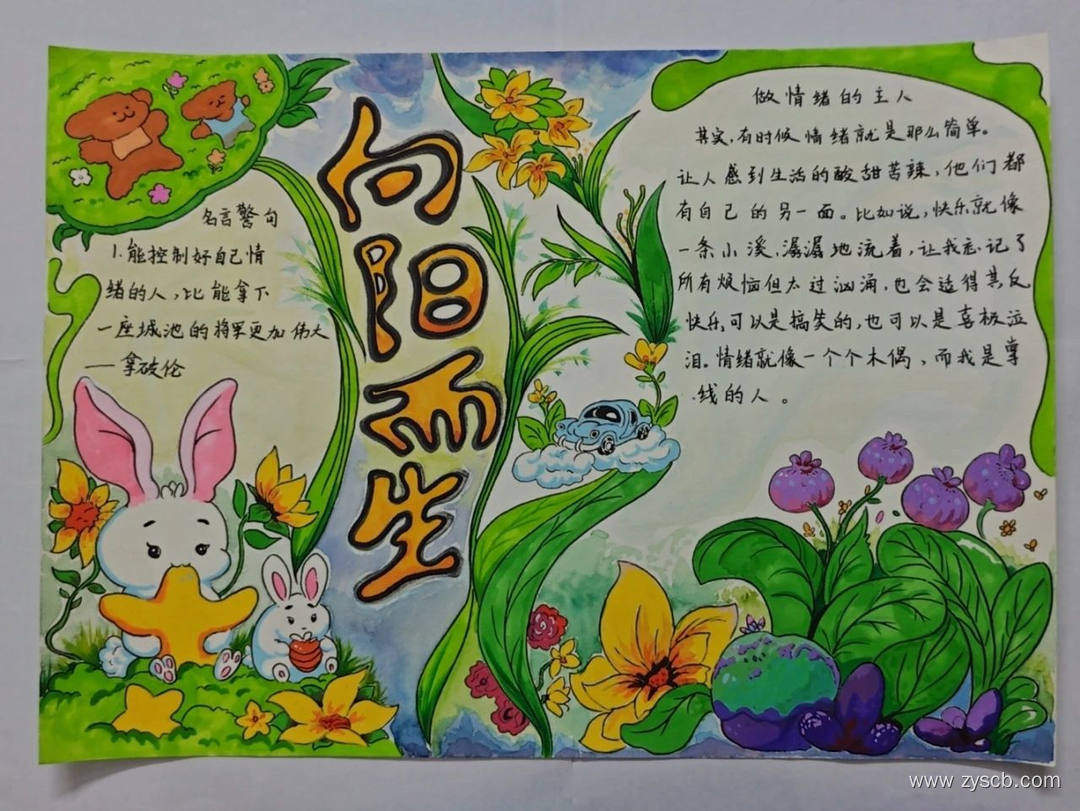 向阳而生
名言警句
1.能控制好自己情
绪的人,比能拿下
一座城池的将军更加伟大
——拿破伦
做情绪的主人
其实,有时候情绪就是那么简单。
让人感到生活的酸甜苦辣,他们都
有自己的另一面。比如说,快乐就像
一条小溪,潺潺地流着,让我忘记了
所有烦恼但太过汹涌,也会适得其反
快乐,可以是搞笑的,也可以是喜极泣
泪。情绪就像一个个木偶,而我是牵
线的人。
www.zyscb.com